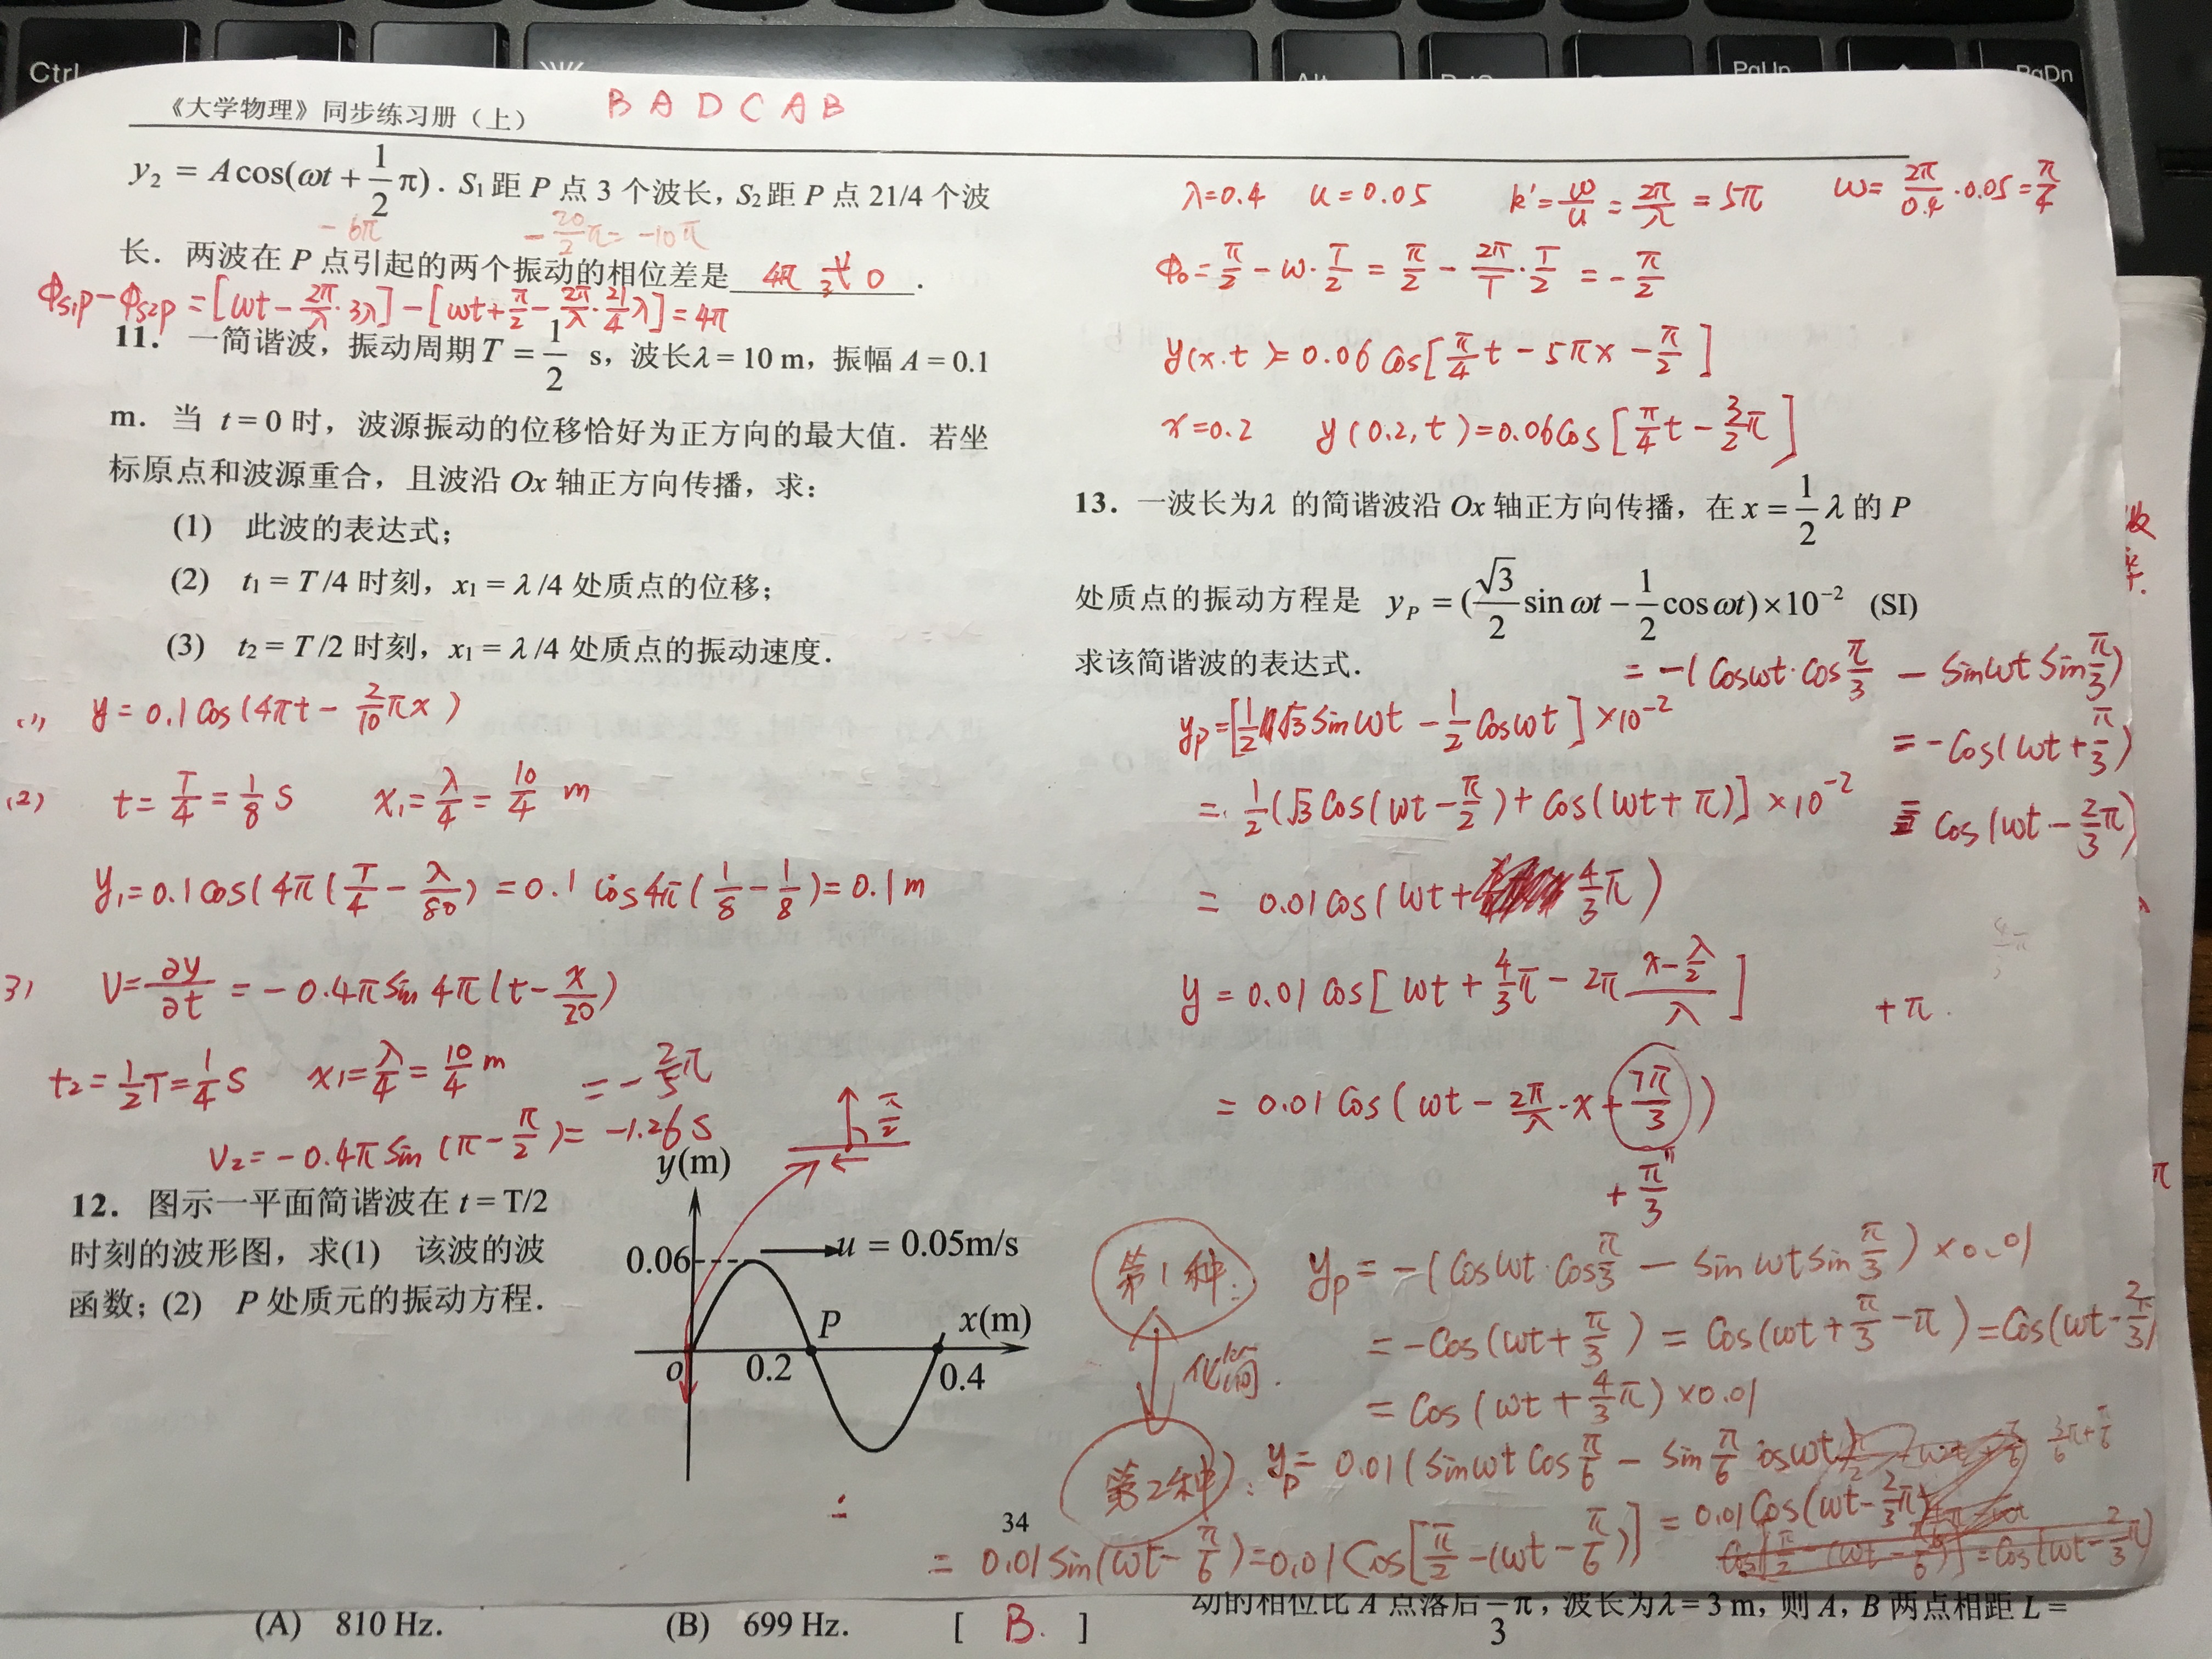 Ctrl
Alt
PgUp
PgDn
《大学物理》同步练习册（上）
B A D C A B
y₂ = A cos(ωt + 1/2 π)．S₁距 P 点 3 个波长，S₂距 P 点 21/4 个波
−6π −20/2 π = −10π
长．两波在 P 点引起的两个振动的相位差是 4π 或 0 ．
Φs₁p−Φs₂p = [ωt − 2π/λ·3λ] − [ωt + π/2 − 2π/λ·21/4 λ] = 4π
11．一简谐波，振动周期 T = 1/2 s，波长λ = 10 m，振幅 A = 0.1
m．当 t = 0 时，波源振动的位移恰好为正方向的最大值．若坐
标原点和波源重合，且波沿 Ox 轴正方向传播，求：
(1) 此波的表达式；
(2) t₁ = T /4 时刻，x₁ = λ /4 处质点的位移；
(3) t₂ = T /2 时刻，x₁ = λ /4 处质点的振动速度．
(1) y = 0.1 cos(4πt − 2/10 πx)
(2) t = T/4 = 1/8 s x₁ = λ/4 = 10/4 m
y₁ = 0.1 cos(4π(T/4 − λ/80) = 0.1 cos4π(1/8 − 1/8) = 0.1 m
3) V = ∂y/∂t = −0.4π sin 4π(t − x/20)
t₂ = 1/2 T = 1/4 s x₁ = λ/4 = 10/4 m = −2/5 π
V₂ = −0.4π sin(π − π/2) = −1.26 s
π/2
12．图示一平面简谐波在 t = T/2
时刻的波形图，求(1) 该波的波
函数；(2) P 处质元的振动方程．
y(m)
0.06
u = 0.05m/s
P
x(m)
o
0.2
0.4
34
λ = 0.4 u = 0.05 k' = ω/u = 2π/λ = 5π ω = 2π/0.4 · 0.05 = π/4
Φ₀ = π/2 − ω·T/2 = π/2 − 2π/T · T/2 = −π/2
y(x.t) = 0.06 cos[π/4 t − 5πx − π/2]
x = 0.2 y(0.2, t) = 0.06 cos[π/4 t − 3/2 π]
13．一波长为λ 的简谐波沿 Ox 轴正方向传播，在 x = 1/2 λ 的 P
处质点的振动方程是 y_P = (√3/2 sin ωt − 1/2 cos ωt)×10⁻² (SI)
求该简谐波的表达式．
= −(cosωt·cosπ/3 − sinωt sinπ/3)
= −cos(ωt + π/3)
= cos(ωt − 2/3 π)
yp = [1/2 √3 sinωt − 1/2 cosωt] ×10⁻²
= 1/2(√3 cos(ωt − π/2) + cos(ωt + π)] ×10⁻²
= 0.01 cos(ωt + 4/3 π)
y = 0.01 cos[ωt + 4/3 π − 2π (x − λ/2)/λ]
+π.
= 0.01 cos(ωt − 2π/λ·x + 7π/3)
+ π/3
第1种： yp = −(cosωt·cosπ/3 − sinωt sinπ/3) ×0.01
= −cos(ωt + π/3) = cos(ωt + π/3 − π) = cos(ωt − 2/3 π)
= cos(ωt + 4/3 π) ×0.01
第2种： yp = 0.01(sinωt cosπ/6 − sinπ/6 cosωt)
= 0.01 sin(ωt − π/6) = 0.01 cos[π/2 − (ωt − π/6)] = 0.01 cos(ωt − 2/3 π)
(A) 810 Hz． (B) 699 Hz． [ B. ]
动的相位比 A 点落后 /3 π，波长为λ = 3 m，则 A，B 两点相距 L =